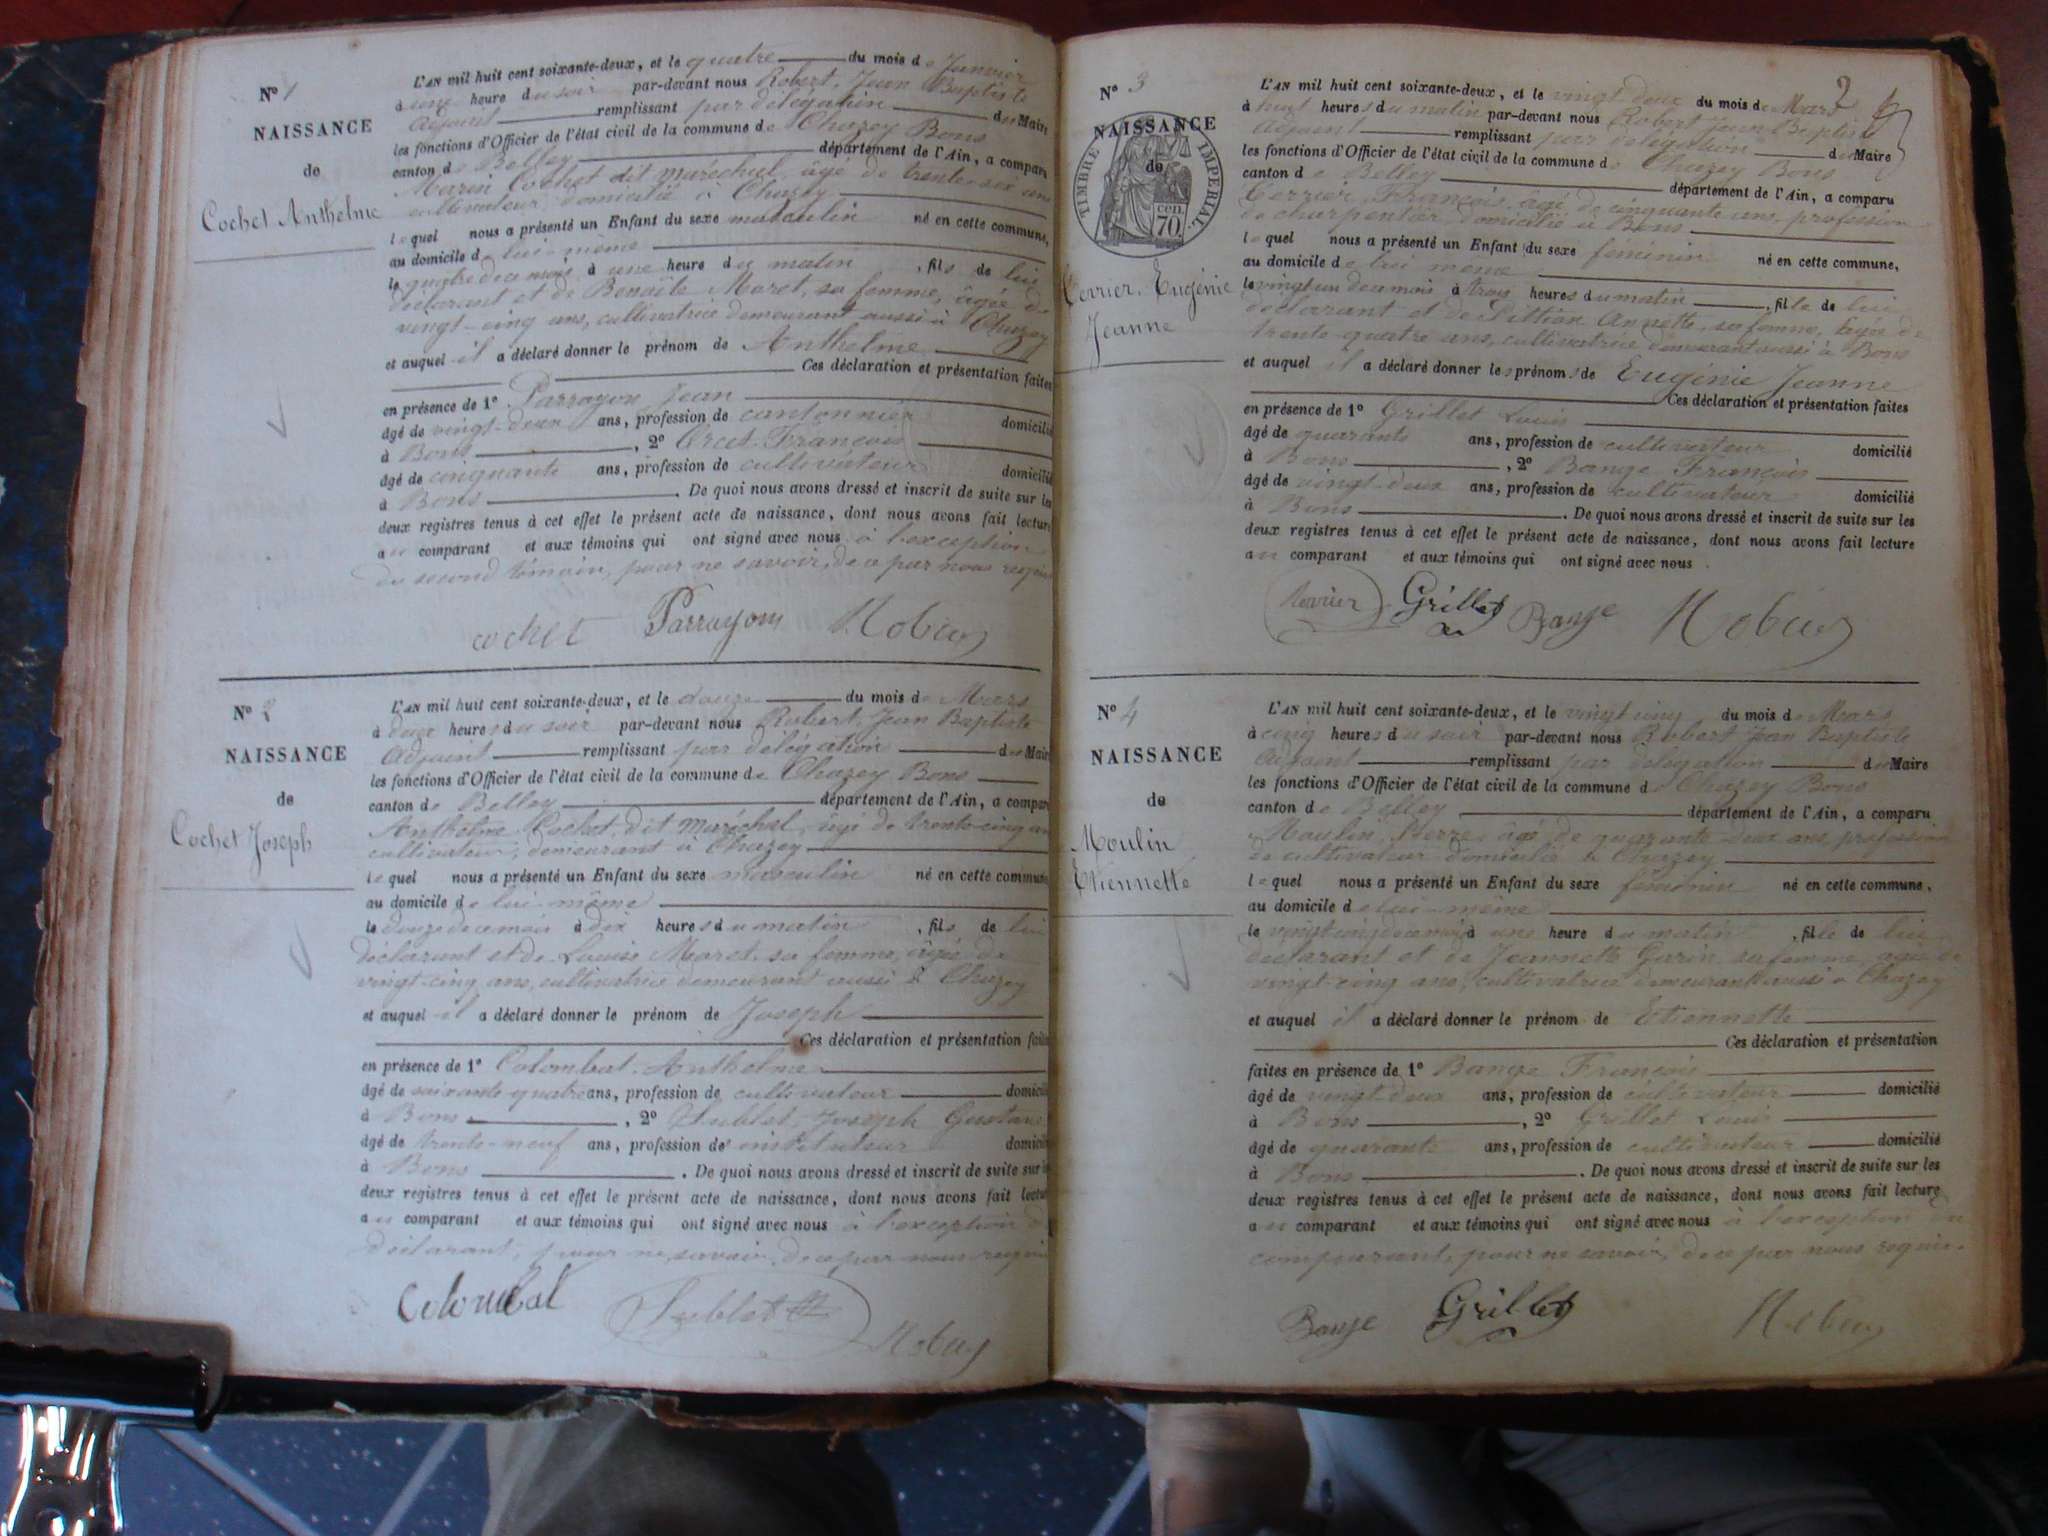 Nº 1
NAISSANCE
de
Cochet Anthelme
L'AN mil huit cent soixante-deux, et le quatre du mois de Janvier
à une heure du soir par-devant nous Robert, Jean Baptiste
adjoint remplissant par délégation du Maire
les fonctions d'Officier de l'état civil de la commune de Chazey Bons
canton de Belley département de l'Ain, a comparu
Marin Cochet dit maréchal, âgé de trente-six ans
cultivateur, domicilié à Chazey
lequel nous a présenté un Enfant du sexe masculin né en cette commune,
au domicile de lui-même
le quatre de ce mois à une heure du matin, fils de lui
déclarant et de Benoîte Maret, sa femme, âgée de
vingt-cinq ans, cultivatrice demeurant aussi à Chazey
et auquel il a déclaré donner le prénom de Anthelme
Ces déclaration et présentation faites
en présence de 1º Parrayon Jean
âgé de vingt-deux ans, profession de cantonnier domicilié
à Bons, 2º François
âgé de cinquante ans, profession de cultivateur domicilié
à Bons. De quoi nous avons dressé et inscrit de suite sur les
deux registres tenus à cet effet le présent acte de naissance, dont nous avons fait lecture
au comparant et aux témoins qui ont signé avec nous à l'exception
du second témoin, pour ne savoir, de ce par nous requis
cochet Parrayon Robert
Nº 2
NAISSANCE
de
Cochet Joseph
L'AN mil huit cent soixante-deux, et le douze du mois de Mars
à deux heures du soir par-devant nous Robert, Jean Baptiste
adjoint remplissant par délégation du Maire
les fonctions d'Officier de l'état civil de la commune de Chazey Bons
canton de Belley département de l'Ain, a comparu
Anthelme Cochet, dit maréchal, âgé de trente-cinq ans
cultivateur, demeurant à Chazey
lequel nous a présenté un Enfant du sexe masculin né en cette commune
au domicile de lui-même
le douze de ce mois à dix heures du matin, fils de lui
déclarant et de Louise Maret sa femme, âgée de
vingt-cinq ans, cultivatrice demeurant aussi à Chazey
et auquel il a déclaré donner le prénom de Joseph
Ces déclaration et présentation faites
en présence de 1º Colombat Anthelme
âgé de soixante-quatre ans, profession de cultivateur domicilié
à Bons, 2º Sublet, Joseph Gustave
âgé de trente-neuf ans, profession de instituteur domicilié
à Bons. De quoi nous avons dressé et inscrit de suite sur les
deux registres tenus à cet effet le présent acte de naissance, dont nous avons fait lecture
au comparant et aux témoins qui ont signé avec nous à l'exception du
déclarant, pour ne savoir, de ce par nous requis
Colombat Sublet Robert
2
Nº 3
NAISSANCE
de
TIMBRE IMPERIAL
70 cen.
Eugénie
Jeanne
L'AN mil huit cent soixante-deux, et le vingt deux du mois de Mars
à huit heures du matin par-devant nous Robert Jean Baptiste
adjoint remplissant par délégation du Maire
les fonctions d'Officier de l'état civil de la commune de Chazey Bons
canton de Belley département de l'Ain, a comparu
François, âgé de cinquante ans, profession
de charpentier, domicilié à Bons
lequel nous a présenté un Enfant du sexe féminin né en cette commune,
au domicile de lui même
le vingt un de ce mois à trois heures du matin, fille de lui
déclarant et de Annette, sa femme, âgée de
trente-quatre ans, cultivatrice demeurant aussi à Bons
et auquel il a déclaré donner les prénoms de Eugénie Jeanne
Ces déclaration et présentation faites
en présence de 1º Grillet Louis
âgé de quarante ans, profession de cultivateur domicilié
à Bons, 2º Bange François
âgé de vingt-deux ans, profession de cultivateur domicilié
à Bons. De quoi nous avons dressé et inscrit de suite sur les
deux registres tenus à cet effet le présent acte de naissance, dont nous avons fait lecture
au comparant et aux témoins qui ont signé avec nous.
Grillet Bange Robert
Nº 4
NAISSANCE
de
Moulin
Etiennette
L'AN mil huit cent soixante-deux, et le vingt cinq du mois de Mars
à cinq heures du soir par-devant nous Robert Jean Baptiste
adjoint remplissant par délégation du Maire
les fonctions d'Officier de l'état civil de la commune de Chazey Bons
canton de Belley département de l'Ain, a comparu
Moulin, Pierre, âgé de quarante-deux ans, profession
de cultivateur domicilié à Chazey
lequel nous a présenté un Enfant du sexe féminin né en cette commune,
au domicile de lui-même
le vingt cinq de ce mois à une heure du matin, fille de lui
déclarant et de Jeannette Garin, sa femme, âgée de
vingt-cinq ans, cultivatrice demeurant aussi à Chazey
et auquel il a déclaré donner le prénom de Etiennette
Ces déclaration et présentation
faites en présence de 1º Bange François
âgé de vingt deux ans, profession de cultivateur domicilié
à Bons, 2º Grillet Louis
âgé de quarante ans, profession de cultivateur domicilié
à Bons. De quoi nous avons dressé et inscrit de suite sur les
deux registres tenus à cet effet le présent acte de naissance, dont nous avons fait lecture
au comparant et aux témoins qui ont signé avec nous à l'exception du
comparant, pour ne savoir, de ce par nous requis.
Bange Grillet Robert